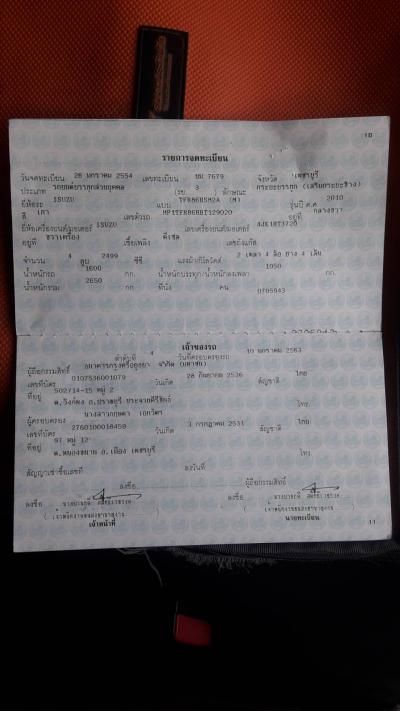 10
รายการจดทะเบียน
วันจดทะเบียน 28 มกราคม 2554 เลขทะเบียน 7679 จังหวัด เพชรบุรี
ประเภท รถยนต์บรรทุกส่วนบุคคล (รย. 3 ) ลักษณะ กระบะบรรทุก (เสริมกระบะข้าง)
ยี่ห้อรถ ISUZU แบบ TFR86HSM2A (M) รุ่นปี ค.ศ. 2010
สี เทา เลขตัวรถ MP1TFR86HBT129020 อยู่ที่ กลางขวา
ยี่ห้อเครื่องยนต์/มอเตอร์ ISUZU เลขเครื่องยนต์/มอเตอร์
อยู่ที่ ขวาเครื่อง เชื้อเพลิง ดีเซล เลขถังแก๊ส
จำนวน 4 สูบ 2499 ซีซี แรงม้า/กิโลวัตต์ 2 เพลา 4 ล้อ ยาง 4 เส้น
น้ำหนักรถ 1600 กก. น้ำหนักบรรทุก/น้ำหนักลงเพลา 1050 กก.
น้ำหนักรวม 2650 กก. ที่นั่ง คน 0705943
เจ้าของรถ
ลำดับที่ 4 วันที่ครอบครองรถ 10 มกราคม 2563
ผู้ถือกรรมสิทธิ์ ธนาคารกรุงศรีอยุธยา จำกัด (มหาชน)
เลขที่บัตร 0107536001079 วันเกิด 28 กันยายน 2536 สัญชาติ ไทย
ที่อยู่ 502/14-15 หมู่ 2
โทร.
ผู้ครอบครอง นางสาวกฤษดา
เลขที่บัตร 2760100018459 วันเกิด 3 กรกฎาคม 2531 สัญชาติ ไทย
ที่อยู่ 97 หมู่ 12
ต.หนองขนาน อ.เมือง เพชรบุรี โทร.
สัญญาเช่าซื้อเลขที่ ลงวันที่
ลงชื่อ ผู้ถือกรรมสิทธิ์
ลงชื่อ ลงชื่อ
เจ้าหน้าที่ นายทะเบียน
11